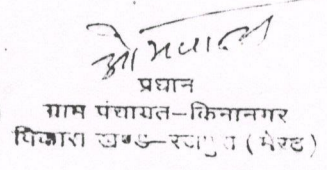 प्रधान
ग्राम पंचायत-किनानगर
विकास खण्ड-रजपुरा (मेरठ)